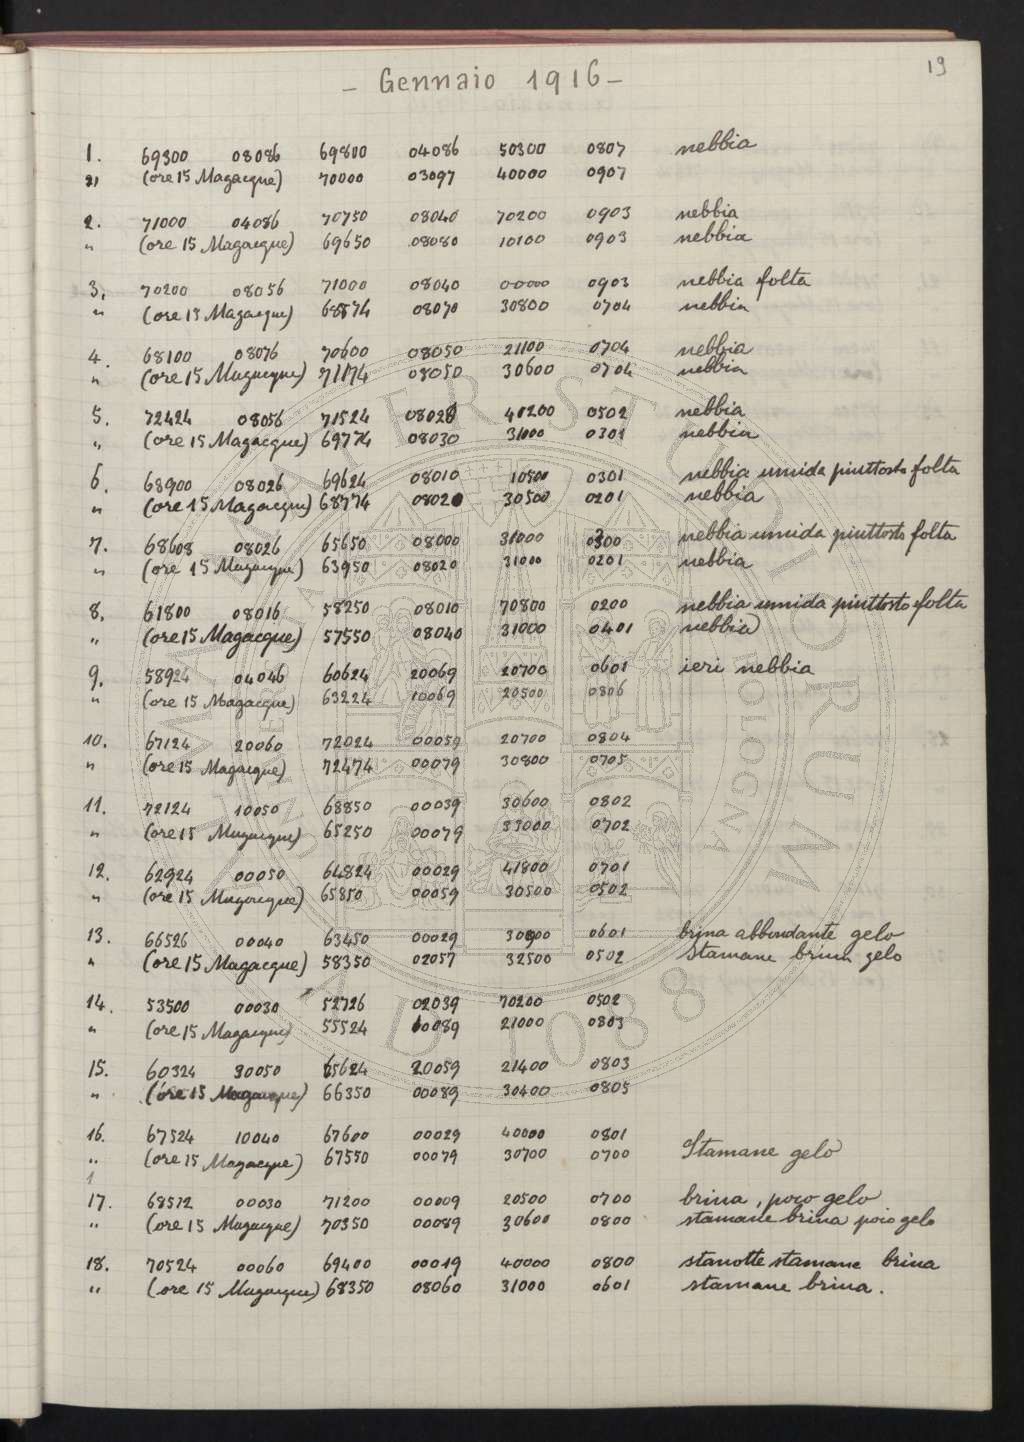 19
- Gennaio 1916 -
1. 69300 08086 69800 04086 50300 0807 nebbia
" (ore 15 Magacque) 70000 03097 40000 0907
2. 71000 04086 70750 08040 70200 0903 nebbia
" (ore 15 Magacque) 69650 08080 10100 0903 nebbia
3. 70200 08056 71000 08040 00000 0903 nebbia folta
" (ore 15 Magacque) 68574 08070 30800 0704 nebbia
4. 68100 08076 70600 08050 21100 0704 nebbia
" (ore 15 Magacque) 71174 08050 30600 0704 nebbia
5. 72424 08056 71524 08020 41200 0502 nebbia
" (ore 15 Magacque) 69774 08030 31000 0301 nebbia
6. 68900 08026 69624 08010 10500 0301 nebbia umida piuttosto folta
" (ore 15 Magacque) 68774 08020 30500 0201 nebbia
7. 68608 08026 65650 08000 31000 0300 nebbia umida piuttosto folta
" (ore 15 Magacque) 63950 08020 31000 0201 nebbia
8. 61800 08016 58250 08010 70800 0200 nebbia umida piuttosto folta
" (ore 15 Magacque) 57550 08040 31000 0401 nebbia
9. 58924 04046 60624 20069 20700 0601 ieri nebbia
" (ore 15 Magacque) 63224 10069 20500 0806
10. 67124 20060 72024 00059 20700 0804
" (ore 15 Magacque) 72474 00079 30800 0705
11. 72124 10050 68850 00039 30600 0802
" (ore 15 Magacque) 65250 00079 33000 0702
12. 62924 00050 64824 00029 41800 0701
" (ore 15 Magacque) 65850 00059 30500 0502
13. 66526 00040 63450 00029 30900 0601 brina abbondante gelo
" (ore 15 Magacque) 58350 02057 32500 0502 stamane brina gelo
14. 53500 00030 52726 02039 70200 0502
" (ore 15 Magacque) 55524 00089 21000 0803
15. 60324 30050 65624 20059 21400 0803
" (ore 15 Magacque) 66350 00089 30400 0805
16. 67524 10040 67600 00029 40000 0801
" (ore 15 Magacque) 67550 00079 30700 0700 Stamane gelo
17. 68572 00030 71200 00009 20500 0700 brina, poco gelo
" (ore 15 Magacque) 70350 00089 30600 0800 stamane brina poco gelo
18. 70524 00060 69400 00019 40000 0800 stanotte stamane brina
" (ore 15 Magacque) 68350 08060 31000 0601 stamane brina.